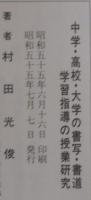 中学・高校・大学の書写・書道
学習指導の授業研究
昭和五十五年六月十六日　印刷
昭和五十五年七月七日　発行
著者　村田光俊